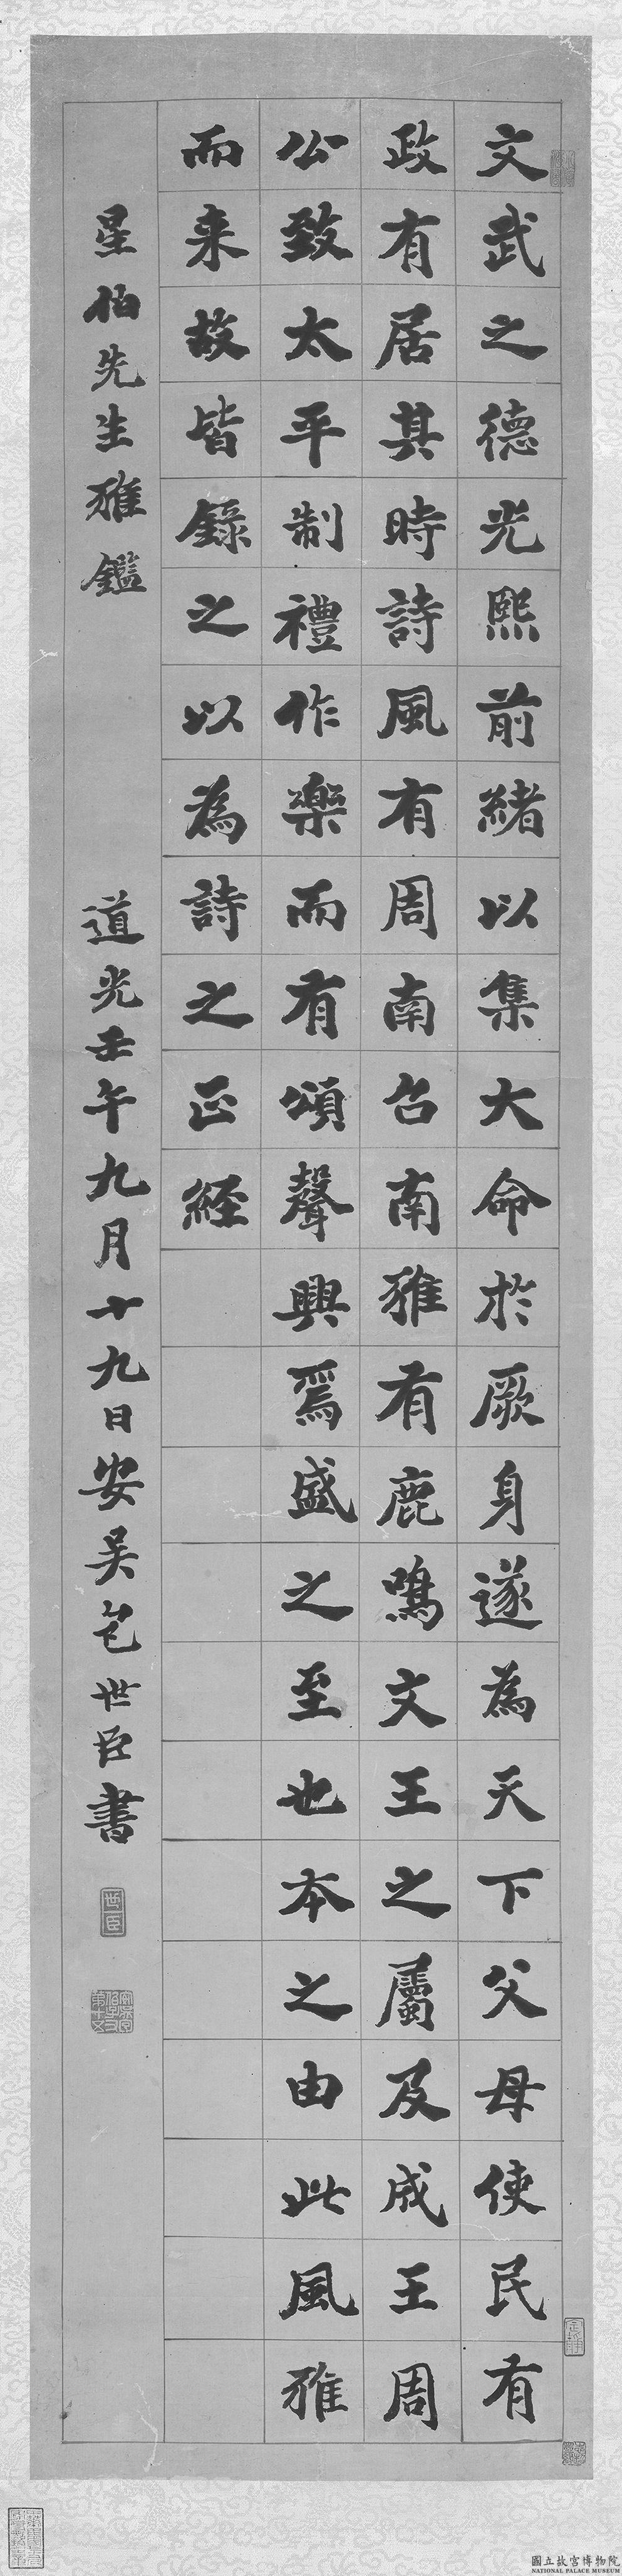 文武之德光熙前緒以集大命於厥身遂為天下父母使民有
政有居其時詩風有周南召南雅有鹿鳴文王之屬及成王周
公致太平制禮作樂而有頌聲興焉盛之至也本之由此風雅
而来故皆錄之以為詩之正經
星伯先生雅鑑
道光壬午九月十九日安吳包世臣書
世臣
國立故宮博物院
NATIONAL PALACE MUSEUM